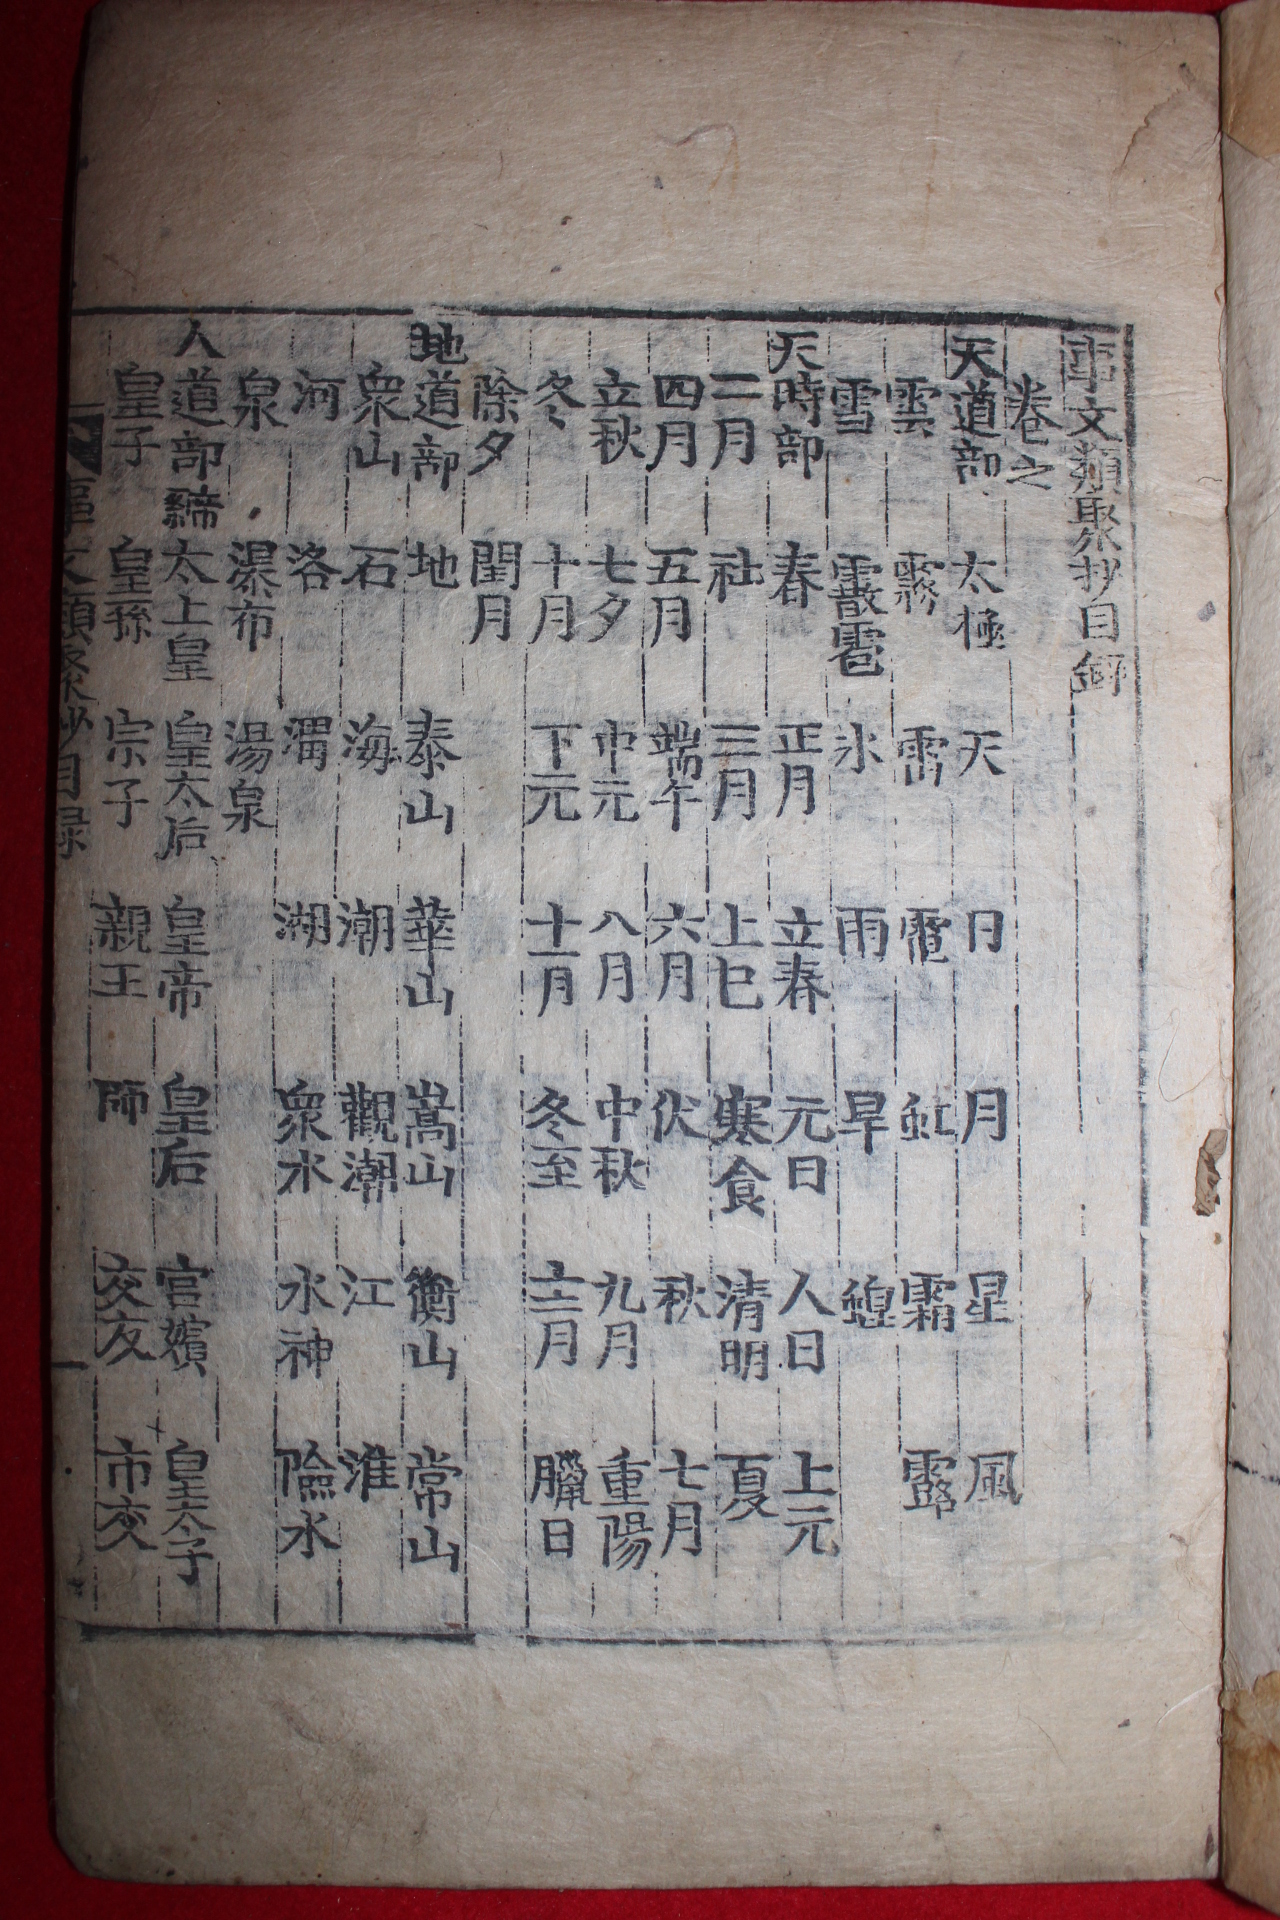 事文類聚抄目錄
卷之
天道部 太極 天 日 月 星 風
雲 霧 雷 電 虹 霜 露
雪 霰雹 氷 雨 旱 蝗
天時部 春 正月 立春 元日 人日 上元
二月 社 三月 上巳 寒食 清明 夏
四月 五月 端午 六月 伏 秋 七月
立秋 七夕 中元 八月 中秋 九月 重陽
冬 十月 下元 十一月 冬至 十二月 臘日
除夕 閏月
地道部 地 泰山 華山 嵩山 衡山 常山
衆山 石 海 潮 觀潮 江 淮
河 洛 渭 湖 衆水 水神 險水
泉 瀑布 湯泉
人道部 太上皇 皇太后 皇帝 皇后 宮嬪 皇太子
皇子 皇孫 宗子 親王 師 交友 市交
事文類聚抄目録